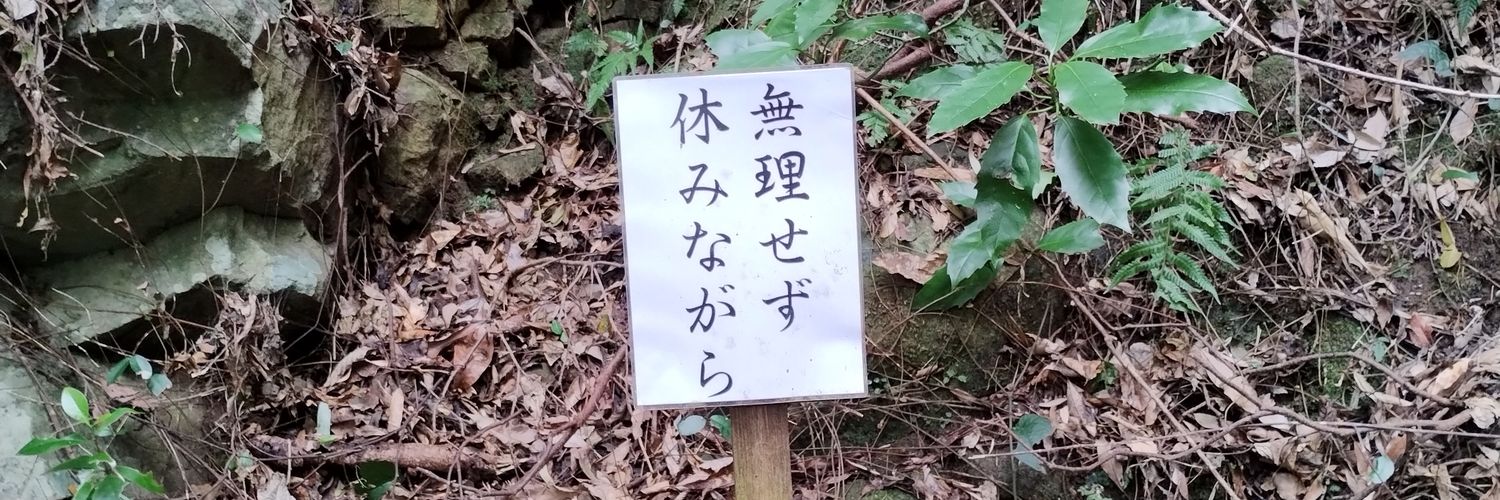 無理せず
休みながら